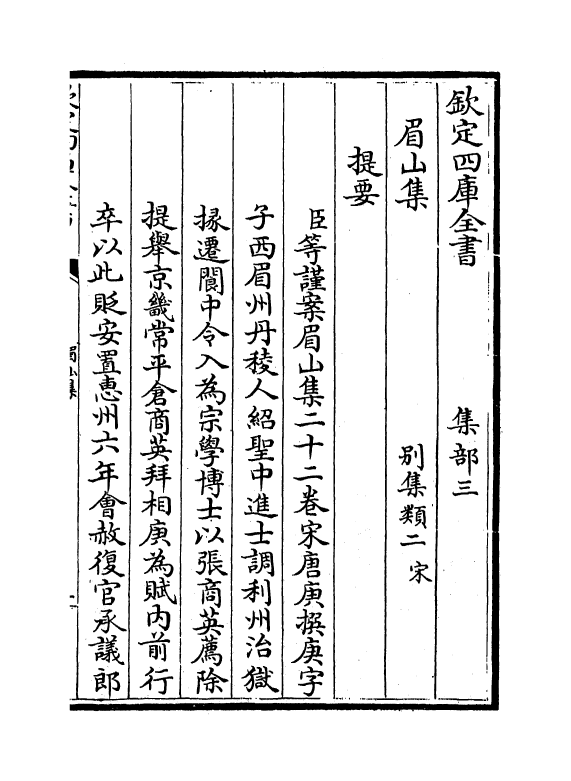 欽定四庫全書　集部三
眉山集　別集類二宋
提要
臣等謹案眉山集二十二卷宋唐庚撰庚字
子西眉州丹稜人紹聖中進士調利州治獄
掾遷閬中令入為宗學博士以張商英薦除
提舉京畿常平倉商英拜相庚為賦内前行
卒以此貶安置惠州六年會赦復官承議郎
眉山集